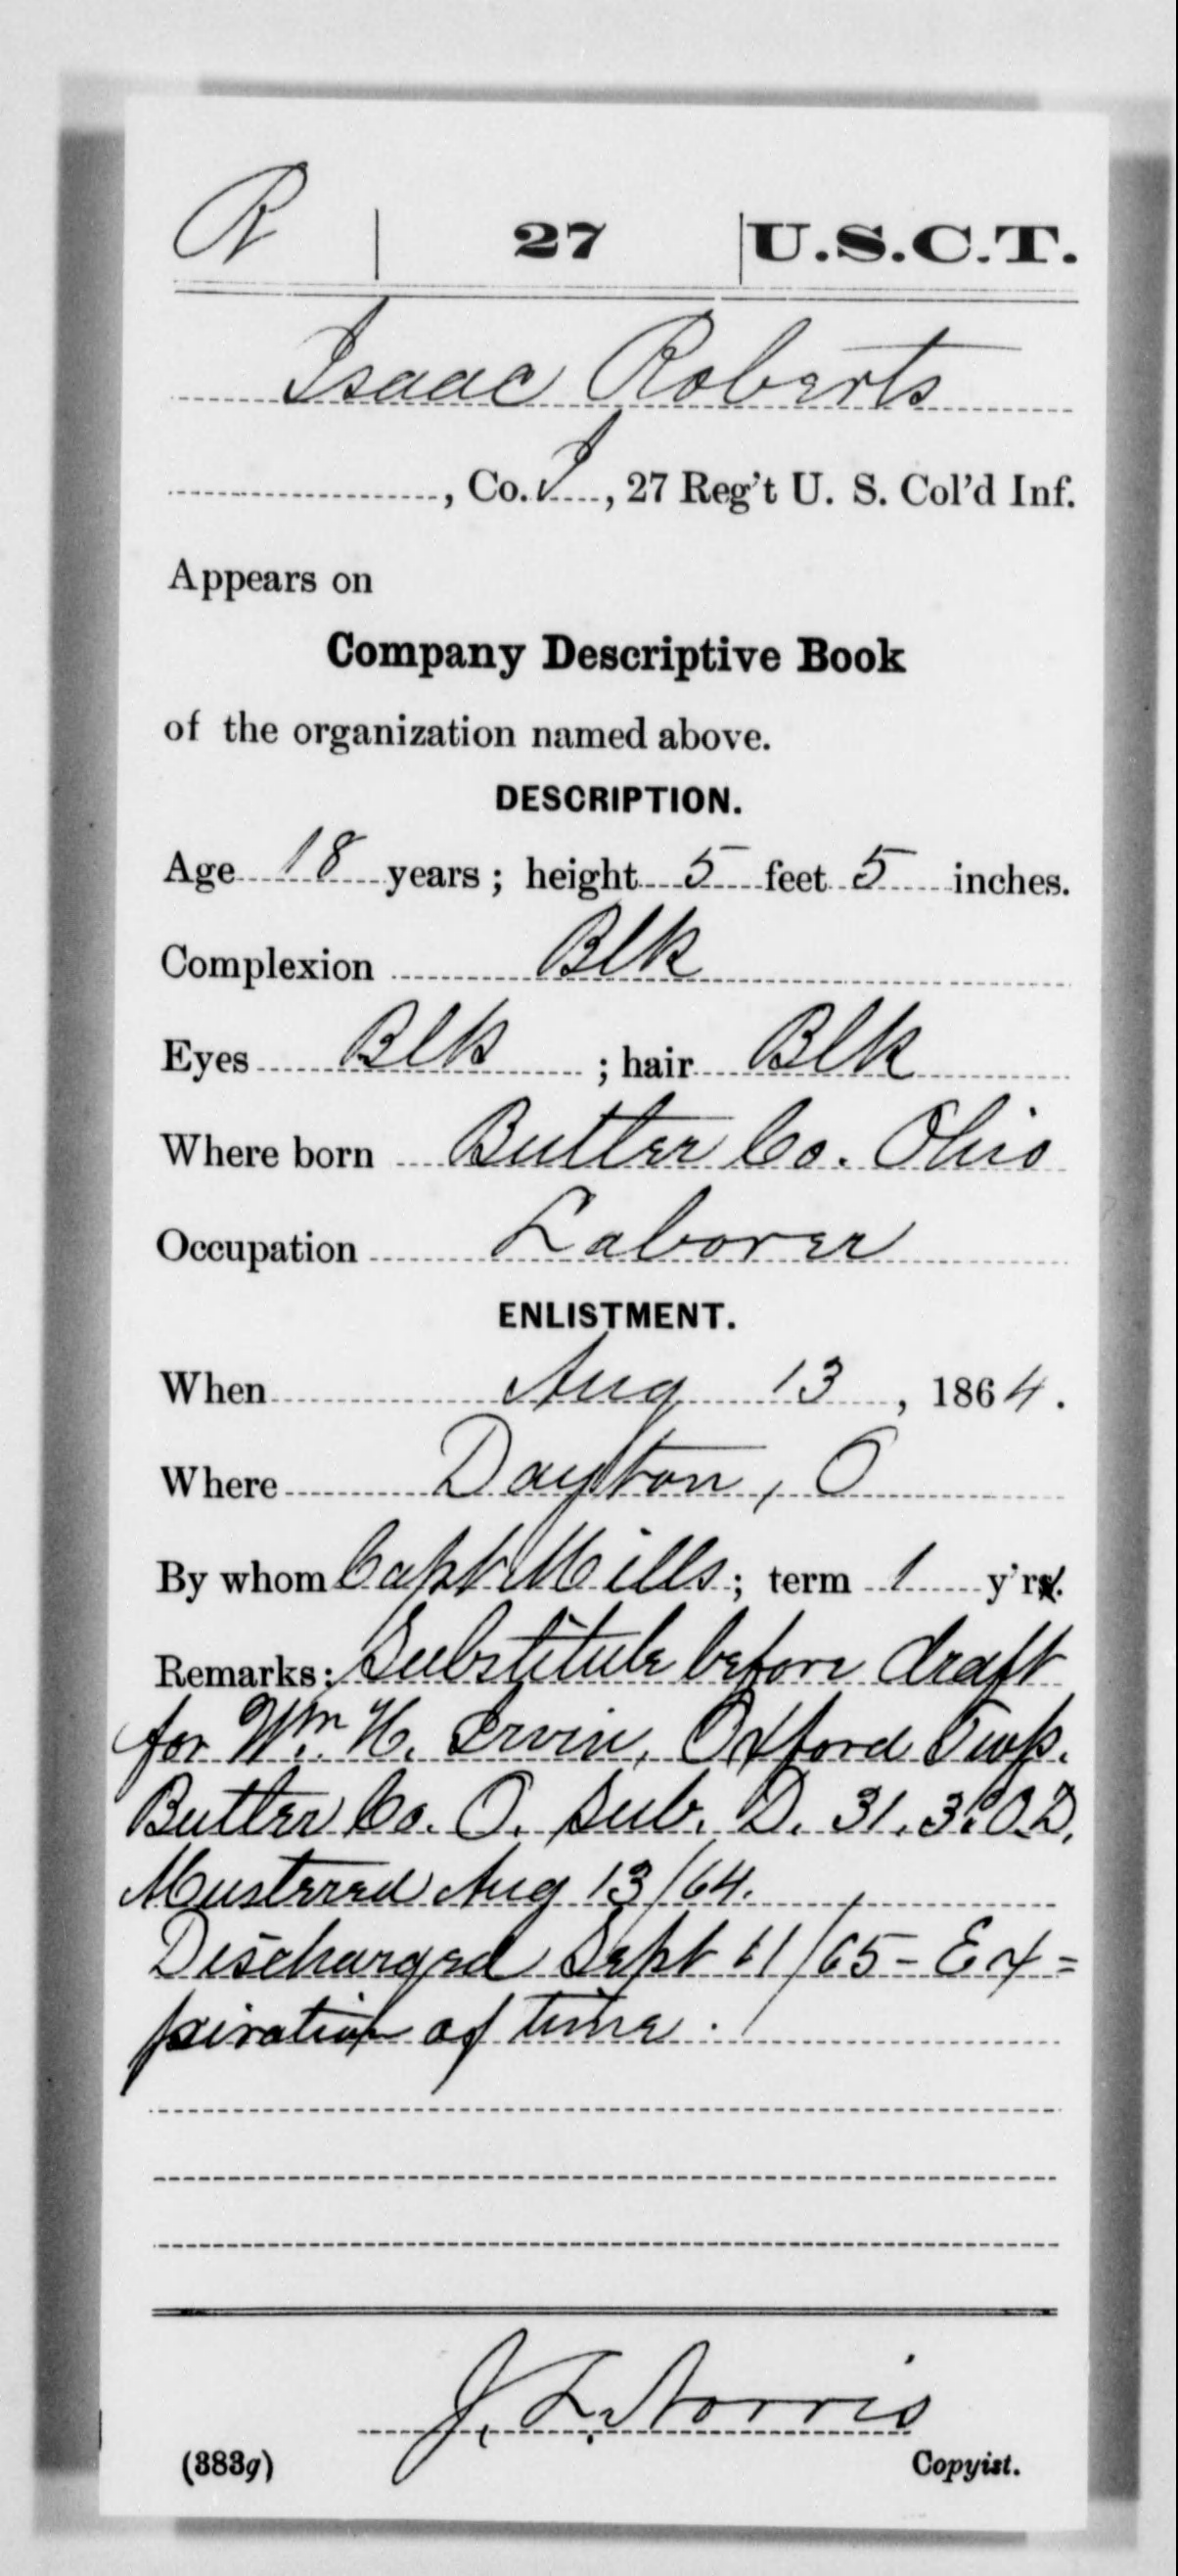 R | 27 | U.S.C.T.
Isaac Roberts
, Co. I, 27 Reg't U. S. Col'd Inf.
Appears on
Company Descriptive Book
of the organization named above.
DESCRIPTION.
Age 18 years; height 5 feet 5 inches.
Complexion Blk
Eyes Blk; hair Blk
Where born Butler Co. Ohio
Occupation Laborer
ENLISTMENT.
When Aug 13, 1864.
Where Dayton, O
By whom Capt Mills; term 1 y'r.
Remarks: Substitute before draft
for Wm. H. Irvin, Oxford Twp.
Butler Co. O. Sub. D. 31. 3. O.D.
Mustered Aug 13/64.
Discharged Sept 11/65 - Ex=
piration of time.
J. L. Norris
(383g) Copyist.